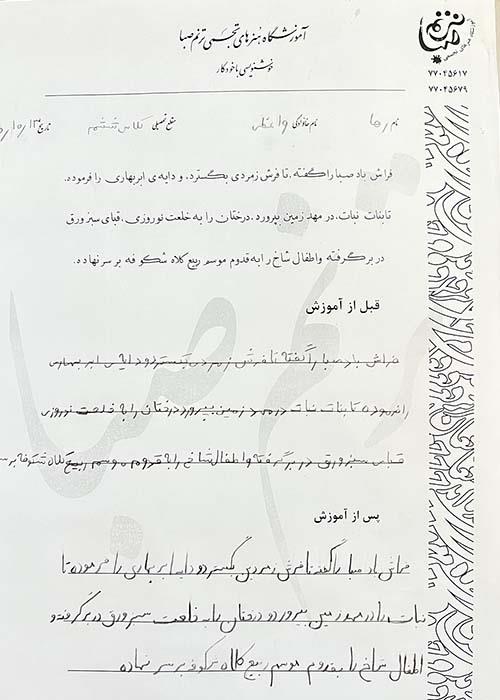 آموزشگاه هنرهای تجسمی ترنم صبا
خوشنویسی با خودکار
ترنم صبا
۷۷۰۴۵۶۱۷
۷۷۰۴۵۶۷۹
نام رها نام خانوادگی واعظی مقطع تحصیلی کلاس ششم تاریخ
فراش باد صبا را گفته، تا فرش زمردی بگسترد، و دایه‌ی ابر بهاری را فرموده،
تا بنات نبات، در مهد زمین بپرورد، درختان را به خلعت نوروزی، قبای سبز ورق
در بر گرفته و اطفال شاخ را به قدوم موسم ربیع کلاه شکوفه بر سر نهاده.
قبل از آموزش
فراش باد صبا را گفته تا فرش زمردی بگسترد و دایه ی ابر بهاری
را فرموده تا بنات نبات در مهد زمین بپرورد درختان را به خلعت نوروزی
قبای سبز ورق در بر گرفته و اطفال شاخ را به قدوم موسم ربیع کلاه شکوفه بر سر
پس از آموزش
فراش باد صبا را گفته تا فرش زمردین بگسترد و دایه ابر بهاری را فرموده تا
نبات را در مهد زمین بپرورد و درختان را به خلعت سبز ورق در بر گرفته و
اطفال شاخ را به قدوم موسم ربیع کلاه شکوفه بر سر نهاده